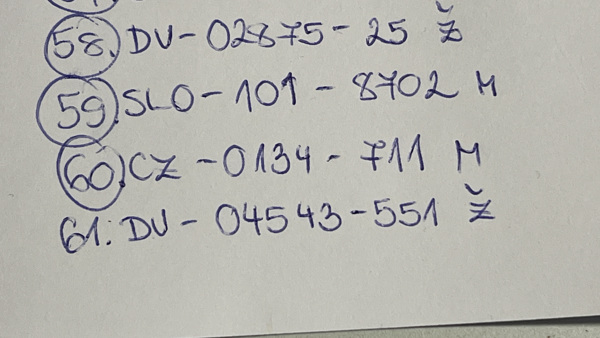 58. DV-02875-25 Ž
59. SLO-101-8702 M
60. CZ-0134-711 M
61. DV-04543-551 Ž